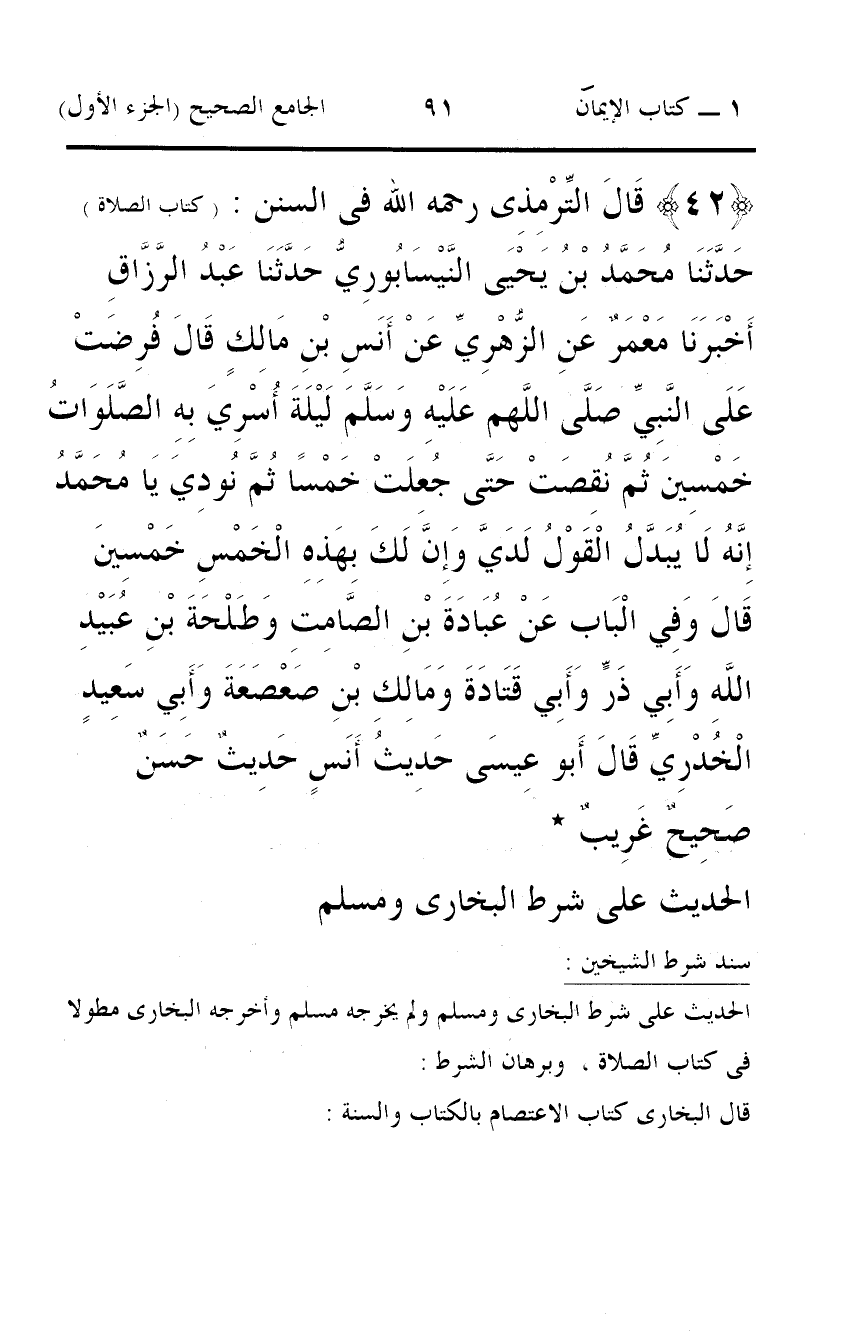 ١ ــ كتاب الإيمان ٩١ الجامع الصحيح (الجزء الأول)
﴿٤٢﴾ قَالَ التِّرْمِذِى رحمه الله فى السنن : ( كتاب الصلاة )
حَدَّثَنَا مُحَمَّدُ بْنُ يَحْيَى النَّيْسَابُورِيُّ حَدَّثَنَا عَبْدُ الرَّزَّاقِ
أَخْبَرَنَا مَعْمَرٌ عَنِ الزُّهْرِيِّ عَنْ أَنَسِ بْنِ مَالِكٍ قَالَ فُرِضَتْ
عَلَى النَّبِيِّ صَلَّى اللَّهم عَلَيْهِ وَسَلَّمَ لَيْلَةَ أُسْرِيَ بِهِ الصَّلَوَاتُ
خَمْسِينَ ثُمَّ نُقِصَتْ حَتَّى جُعِلَتْ خَمْسًا ثُمَّ نُودِيَ يَا مُحَمَّدُ
إِنَّهُ لَا يُبَدَّلُ الْقَوْلُ لَدَيَّ وَإِنَّ لَكَ بِهَذِهِ الْخَمْسِ خَمْسِينَ
قَالَ وَفِي الْبَابِ عَنْ عُبَادَةَ بْنِ الصَّامِتِ وَطَلْحَةَ بْنِ عُبَيْدِ
اللَّهِ وَأَبِي ذَرٍّ وَأَبِي قَتَادَةَ وَمَالِكِ بْنِ صَعْصَعَةَ وَأَبِي سَعِيدٍ
الْخُدْرِيِّ قَالَ أَبو عِيسَى حَدِيثُ أَنَسٍ حَدِيثٌ حَسَنٌ
صَحِيحٌ غَرِيبٌ *
الحديث على شرط البخارى ومسلم
سند شرط الشيخين :
الحديث على شرط البخارى ومسلم ولم يخرجه مسلم وأخرجه البخارى مطولا
فى كتاب الصلاة ، وبرهان الشرط :
قال البخارى كتاب الاعتصام بالكتاب والسنة :